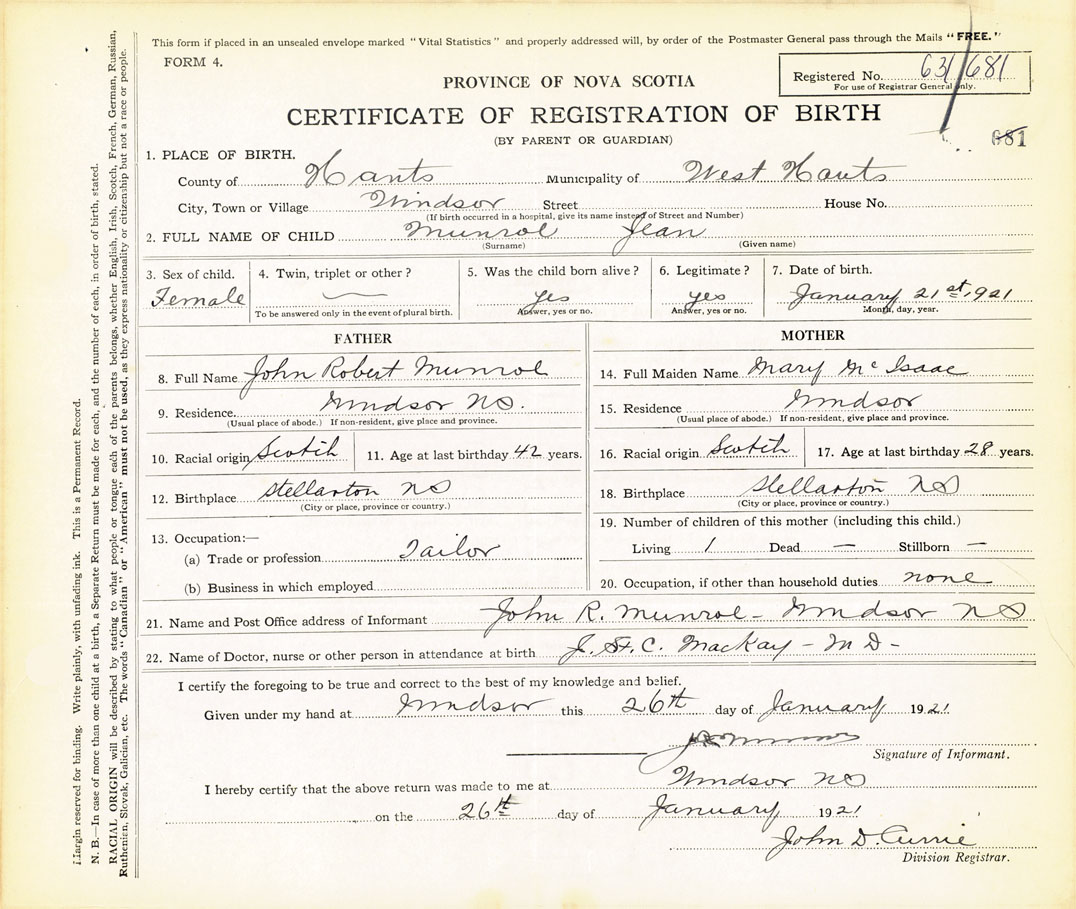 This form if placed in an unsealed envelope marked "Vital Statistics" and properly addressed will, by order of the Postmaster General pass through the Mails "FREE."
FORM 4.
Registered No. 63/681
For use of Registrar General only.
PROVINCE OF NOVA SCOTIA
CERTIFICATE OF REGISTRATION OF BIRTH
(BY PARENT OR GUARDIAN)
681
1. PLACE OF BIRTH.
County of Hants Municipality of West Hants
City, Town or Village Windsor Street House No.
(If birth occurred in a hospital, give its name instead of Street and Number)
2. FULL NAME OF CHILD Munroe Jean
(Surname) (Given name)
3. Sex of child. 4. Twin, triplet or other? 5. Was the child born alive? 6. Legitimate? 7. Date of birth.
Female yes yes January 21st 1921
To be answered only in the event of plural birth. Answer, yes or no. Answer, yes or no. Month, day, year.
FATHER
8. Full Name John Robert Munroe
9. Residence Windsor NS.
(Usual place of abode.) If non-resident, give place and province.
10. Racial origin Scotch 11. Age at last birthday 42 years.
12. Birthplace Stellarton NS
(City or place, province or country.)
13. Occupation:—
(a) Trade or profession Tailor
(b) Business in which employed
MOTHER
14. Full Maiden Name Mary McIsaac
15. Residence Windsor
(Usual place of abode.) If non-resident, give place and province.
16. Racial origin Scotch 17. Age at last birthday 28 years.
18. Birthplace Stellarton NS
(City or place, province or country.)
19. Number of children of this mother (including this child.)
Living 1 Dead — Stillborn —
20. Occupation, if other than household duties none
21. Name and Post Office address of Informant John R. Munroe - Windsor NS
22. Name of Doctor, nurse or other person in attendance at birth J. St. C. MacKay - M D -
I certify the foregoing to be true and correct to the best of my knowledge and belief.
Given under my hand at Windsor this 26th day of January 1921
JR Munroe
Signature of Informant.
I hereby certify that the above return was made to me at Windsor NS
on the 26th day of January 1921
John D. Currie
Division Registrar.
Margin reserved for binding. Write plainly, with unfading ink. This is a Permanent Record.
N. B.—In case of more than one child at a birth, a Separate Return must be made for each, and the number of each, in order of birth, stated.
RACIAL ORIGIN will be described by stating to what people or tongue each of the parents belongs, whether English, Irish, Scotch, French, German, Russian,
Ruthenian, Slovak, Galician, etc. The words "Canadian" or "American" must not be used, as they express nationality or citizenship but not a race or people.